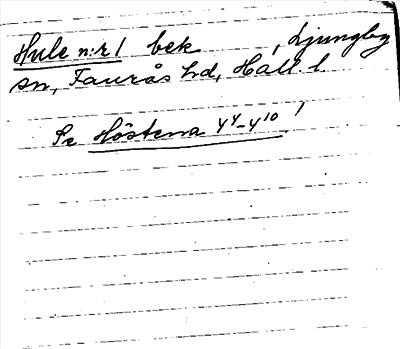 Hule n:r 1 bek , Ljungby
sn, Faurås hd, Hall. l.
Se Höstena 4⁴-4¹⁰!